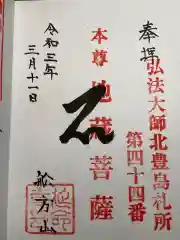 奉拝
弘法大師北豊島札所
第四十四番
本尊地蔵菩薩
令和三年
三月十一日
船方山